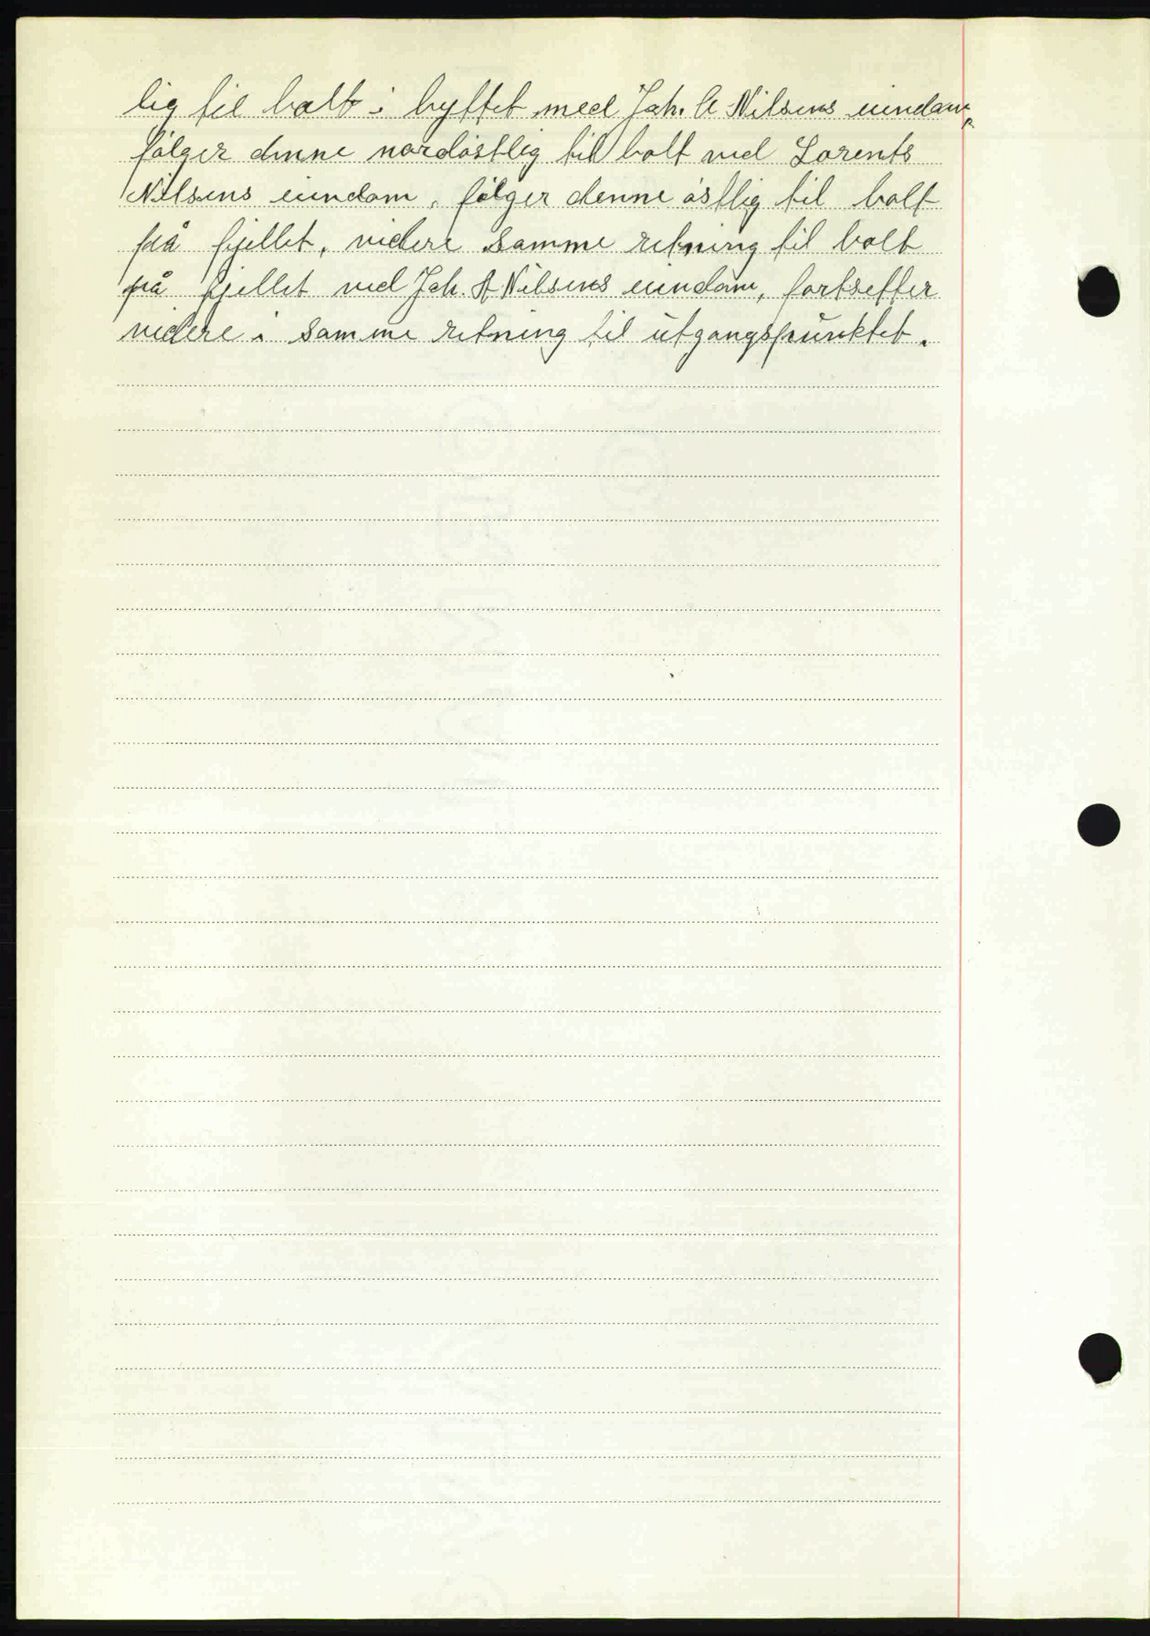 lig til bolt i byttet med Joh. A Nilsens eiendom,
følger denne nordøstlig til bolt ved Lorents
Nilsens eiendom, følger denne østlig til bolt
på fjellet, videre samme retning til bolt
på fjellet ved Joh. A Nilsens eiendom, fortsetter
videre i samme retning til utgangspunktet.